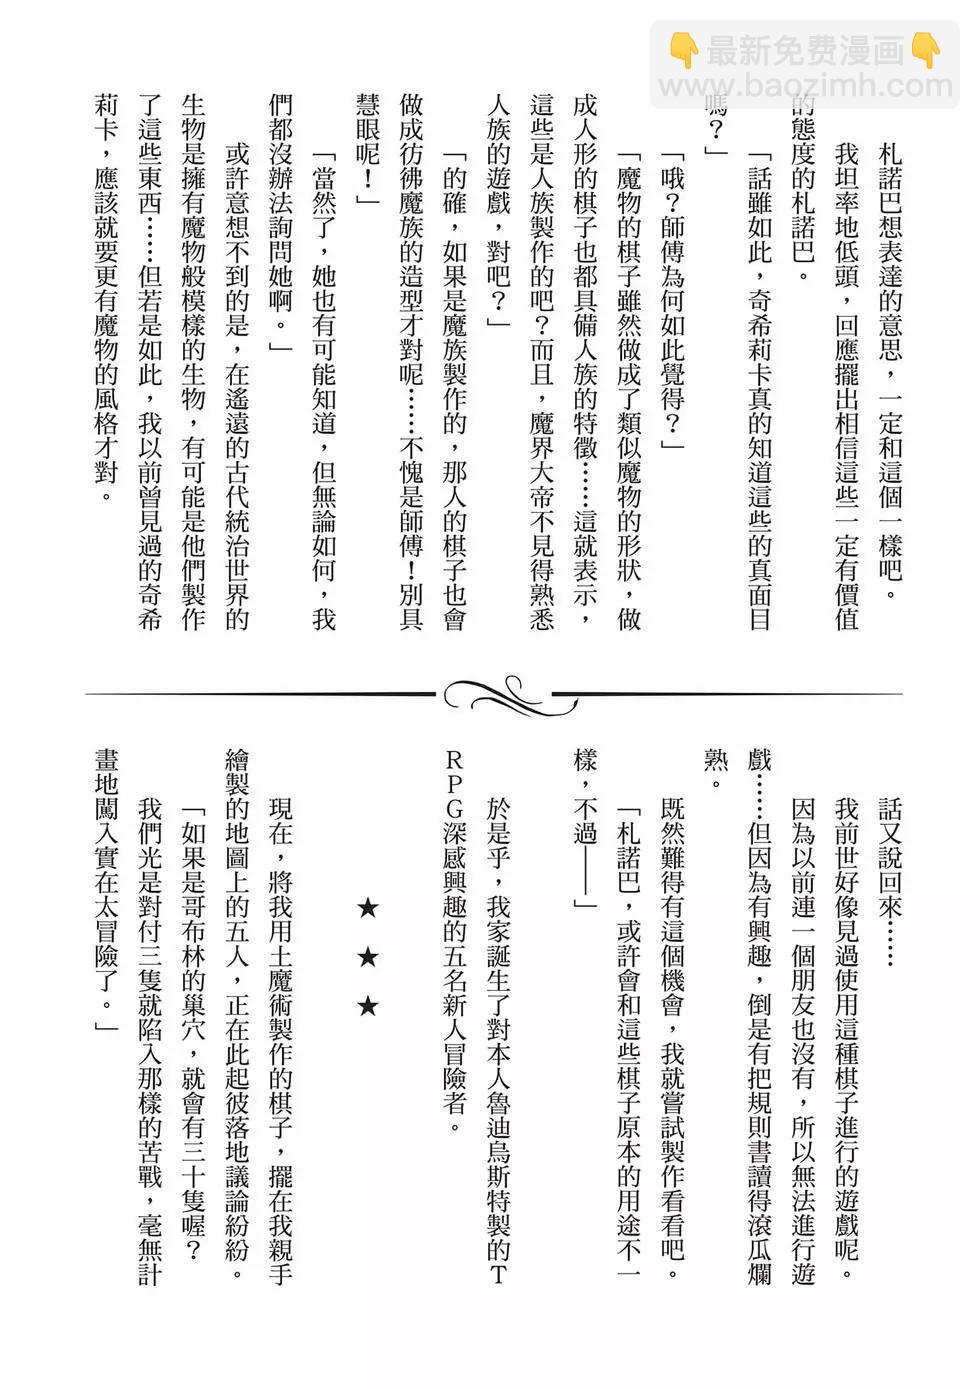 👇最新免费漫画👇
www.baozimh.com
札諾巴想表達的意思，一定和這個一樣吧。
我坦率地低頭，回應擺出相信這些一定有價值
的態度的札諾巴。
「話雖如此，奇希莉卡真的知道這些的真面目
嗎？」
「哦？師傅為何如此覺得？」
「魔物的棋子雖然做成了類似魔物的形狀，做
成人形的棋子也都具備人族的特徵……這就表示，
這些是人族製作的吧？而且，魔界大帝不見得熟悉
人族的遊戲，對吧？」
「的確，如果是魔族製作的，那人的棋子也會
做成彷彿魔族的造型才對呢……不愧是師傅！別具
慧眼呢！」
「當然了，她也有可能知道，但無論如何，我
們都沒辦法詢問她啊。」
或許意想不到的是，在遙遠的古代統治世界的
生物是擁有魔物般模樣的生物，有可能是他們製作
了這些東西……但若是如此，我以前曾見過的奇希
莉卡，應該就要更有魔物的風格才對。
話又說回來……
我前世好像見過使用這種棋子進行的遊戲呢。
因為以前連一個朋友也沒有，所以無法進行遊
戲……但因為有興趣，倒是有把規則書讀得滾瓜爛
熟。
既然難得有這個機會，我就嘗試製作看看吧。
「札諾巴，或許會和這些棋子原本的用途不一
樣，不過——」
於是乎，我家誕生了對本人魯迪烏斯特製的Ｔ
ＲＰＧ深感興趣的五名新人冒險者。
★　★　★
現在，將我用土魔術製作的棋子，擺在我親手
繪製的地圖上的五人，正在此起彼落地議論紛紛。
「如果是哥布林的巢穴，就會有三十隻喔？
我們光是對付三隻就陷入那樣的苦戰，毫無計
畫地闖入實在太冒險了。」